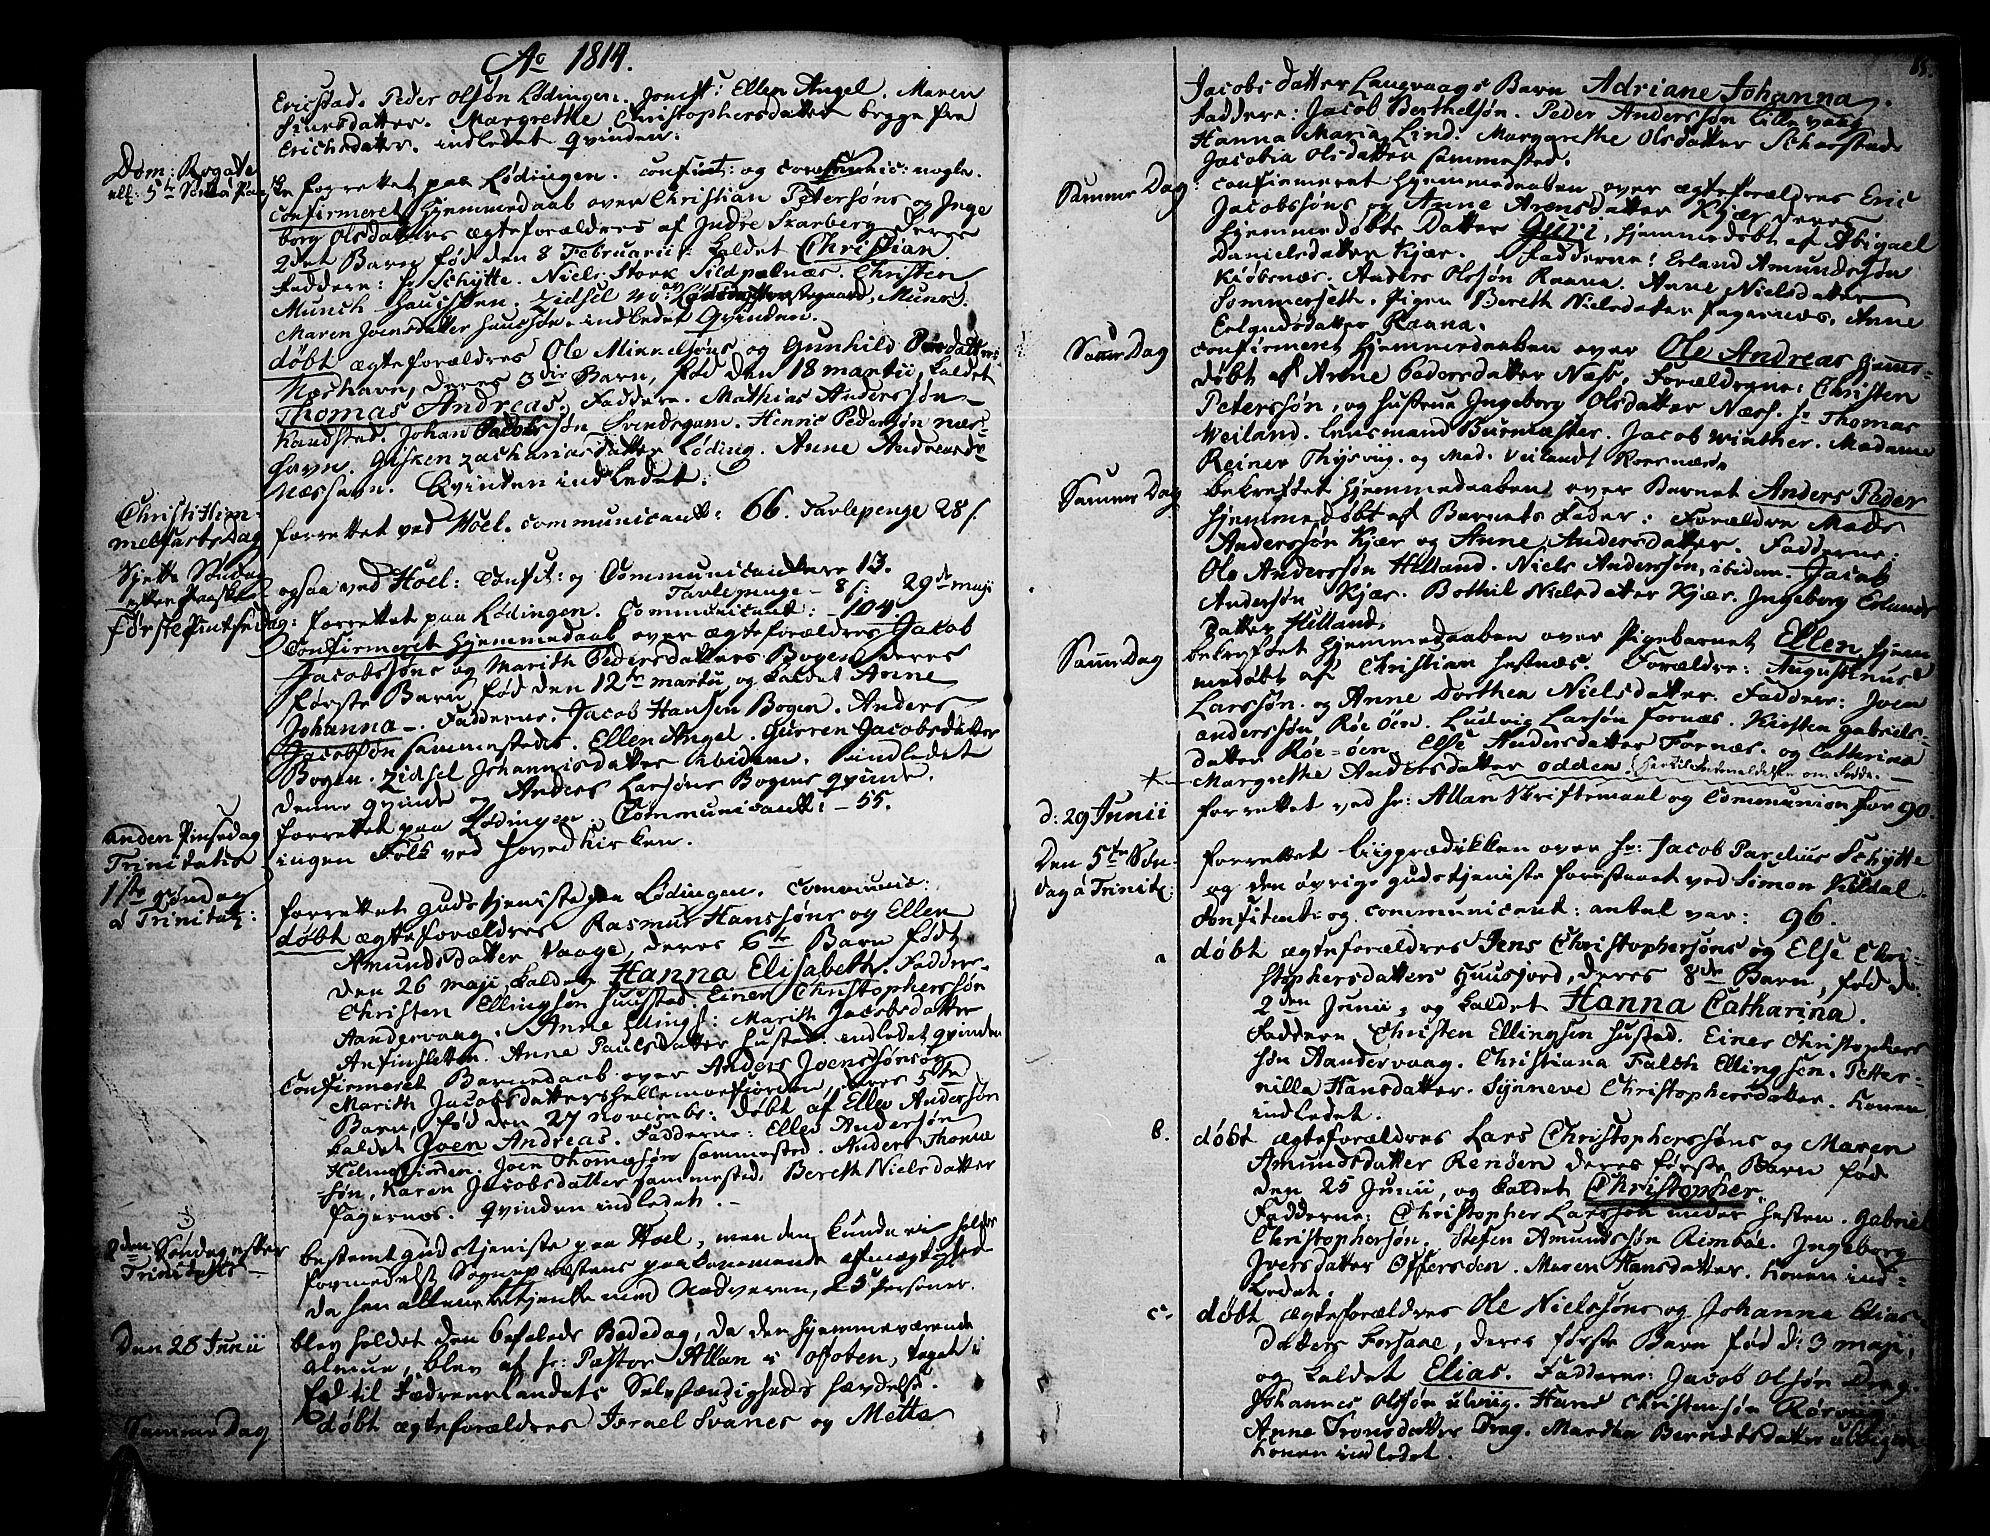 Ao 1814.
Ericstad. Peder Olsøn Lødingen. Jomf: Ellen Angel. Maren
Siursdatter. Margrethe Christophersdatter begge fra
Erichsdatter. indledet Qvinden.
Dom: Rogate
ell: 5te Sønd. e Paa
ske forrettet paa Lødingen. confit: og communic: nogle.
confirmeret hjemmedaab over Christian Petersøns og Inge
borg Olsdatters ægteforældres af Indre Skarberg deres
2det Barn fød den 8 Februarii kaldet Christian.
Faddere: hr Schytte. Niels Stork Sildpolnæs. Christen
Munch
Maren Joensdatter indledet Qvinden.
døbt ægteforældres Ole Mikkelsøns og Gunhild Persdatters
Næshavn, deres 3die Barn, fød den 18 martii, kaldet
Thomas Andreas. Faddere. Mathias Anderssøn
Kandstad. Johan Jacobsøn Svendsgam. Henric Pedersøn næs-
havn. Gisken zachariasdatter Løding. Anne Andreasdr
Næshavn. Qvinden indledet.
Christi Him-
melfartsdag forrettet ved Hoel. communicant: 66. Tavlepenge 28 s.
Sjette Søndag
efter Paaske
ogsaa ved Hoel: Confit: og Communicantere 13.
Tavlepenge - 8 s: 29de maji
Første Pintsedag: forrettet paa Lødingen. Communicant: - 104.
Confirmeret hjemmedaab over ægteforældres Jakob
Jacobssøns og Marith Pedersdatters Bogen deres
første Barn fød den 12te martii og kaldet Anne
Johanna -. Fadderne. Jacob Hansen Bogen. Anders
Jacobsøn sammesteds. Ellen Angel. Gurren Jacobsdatter
Bogen. Zidsel Johannisdatter ibidem. indledet
denne qvinde og Anders Larsøns Bogens qvinde.
anden Pinsedag forrettet paa Lødingen. Communicant: - 55.
Trinitatis ingen Folk ved hovedkirken.
1ste søndag
a Trinitat:
forrettet gudstjeniste paa Lødingen. communic:
døbt ægteforældres Rasmus Hanssøns og Ellen
Amundsdatter Vaage, deres 6te Barn født
den 26 maji, kaldet Hanna Elisabeth. Faddere-
Christen Ellingsøn Huustad. Einer Christophersøn
Aandervaag. Anne Ellings: Marith Jacobsdatter
Anfinsletten. Anne Paulsdatter Hustad. indledet qvinden
Confirmeret Barnedaab over Anders Joenssøns og
Marith Jacobsdatters hellemosfiorden, deres 5te
Barn, fød den 27 novembr: døbt af Elle Andersøn
kaldet Joen Andreas. Fadderne: Elle Andersøn
Helmosfiorden. Joen Thomæsøn sammested. Anders Thomæ
søn, Karen Jacobsdatter sammested. Bereth Nielsdatter
Fagernæs. Qvinden indledet. -
2den Søndag efter
Trinitatis -
bestemt gudstjeniste paa Hoel, men den kunde ei holdes
formedelst Sognepræstens paakommende afmægtighed
da han allene betjente med Nadveren, 25 Personer.
Den 28 Junii blev holdet den befalede Bededag, da den hjemmeværende
almue, blev af hr: Pastor Allan i Ofoten, taget i
Eed til Fædrenelandets Selvstændigheds hævdelse.
Samme Dag døbt ægteforældres Israel Svanes og Metta
Jacobsdatter Langvaags Barn Adriane Johanna.
Faddere: Jacob Berthelsøn. Peder Anderssøn Lillevaag
Hanna Maria Lind. Margarethe Olsdatter Scharstad.
Jacobia Olsdatter sammested.
Samme Dag: confirmeret hjemmedaaben over ægteforældres Eric
Jacobssøns og Anne Arensdatter Kjær deres
hjemmedøbte Datter Guri, hjemmedøbt af Abigael
Danielsdatter Kjær. Fadderne: Erland Amundssøn
Kiøbsnæs. Anders Olsøn Raana. Anne Nielsdatter
Sommerseth. Pigen Bereth Nielsdatter Fagernæs. Anne
Erlandsdatter Raana.
Samme Dag confirmeret hjemmedaaben over Ole Andreas hjemme-
døbt af Anne Pedersdatter Næss, Forældrene: Christen
Peterssøn, og hustrue Ingeborg Olsdatter Næss. hr Thomas
Veiland. Lensmand Burmæster. Jacob Winther. Madame
Reiner Thysvag. og Mad. Veilandt Korsnæs.
Samme Dag bekreftet hjemmedaaben over Barnet Anders Peder
hjemmedøbt af Barnets Fader: Forældre Mads
Anderssøn Kjær og Anne Andersdatter. Fadderne:
Ole Anderssøn Hilland. Niels Anderssøn, ibidem. Jacob
Andersøn Kjær. Bothil Nielsdatter Kjær. Ingeborg Erlands
datter Hilland.
Samme Dag bekreftet hjemmedaaben over Pigebarnet Ellen, hjem-
medøbt af Christian hestnæs. Forældre: Augustinus
Larssøn. og Anne Dorthea Nielsdatter. Faddere: Joen
andersøn, Røe Öen. Ludvig Larsøn Fornæs. Kirsten gabriels-
datter Røe-öen. Else Andersdatter Fornæs. og Cathrina
Margrethe Andersdatter Odden.
d: 29 Junii forrettet ved hr: Allan Skriftemaal og Communion for 90.
Den 5te Søn-
dag a Trinit: forrettet liigprædikken over hr: Jacob Parelius Schytte
og den øvrige gudstjeniste forestaaet ved Simon Kildal.
Confitent: og communicant: antal var: 96.
a døbt ægteforældres Jens Christophersøns og Else Chri-
stophersdatters Huusfjord, deres 8de Barn, fød d:
2den Junii, og kaldet Hanna Catharina.
Faddere Christen Ellingsen Hustad. Einer Christophers
søn Aandervaag. Christiana Falch Ellingsen. Petter-
nilla Hansdatter. Synneve Christophersdatter. Konen
indledet.
b. døbt ægteforældres Lars Christopherssøns og Maren
Amundsdatter Renöen deres første Barn fød
den 25 Junii, og kaldet Christopher.
Fadderne: Christopher Larssøn under hesten. Gabriel
Christophersøn. Stefen Amundssøn Rimböe. Ingeborg
Iversdatter Offersöen. Maren Hansdatter. Konen ind-
ledet.
c. døbt ægteforældres Ole Nielssøns og Johanna Elias
datters Forsaae, deres første Barn fød d: 3 maji,
og kaldet Elias. Fadderne: Jacob Olsøn Drag.
Johannes Olssøn ulvig. Hans Christensøn Rørvig.
Anne Tronsdatter Drag. Marthe Berntsdatter
Konen indledet.